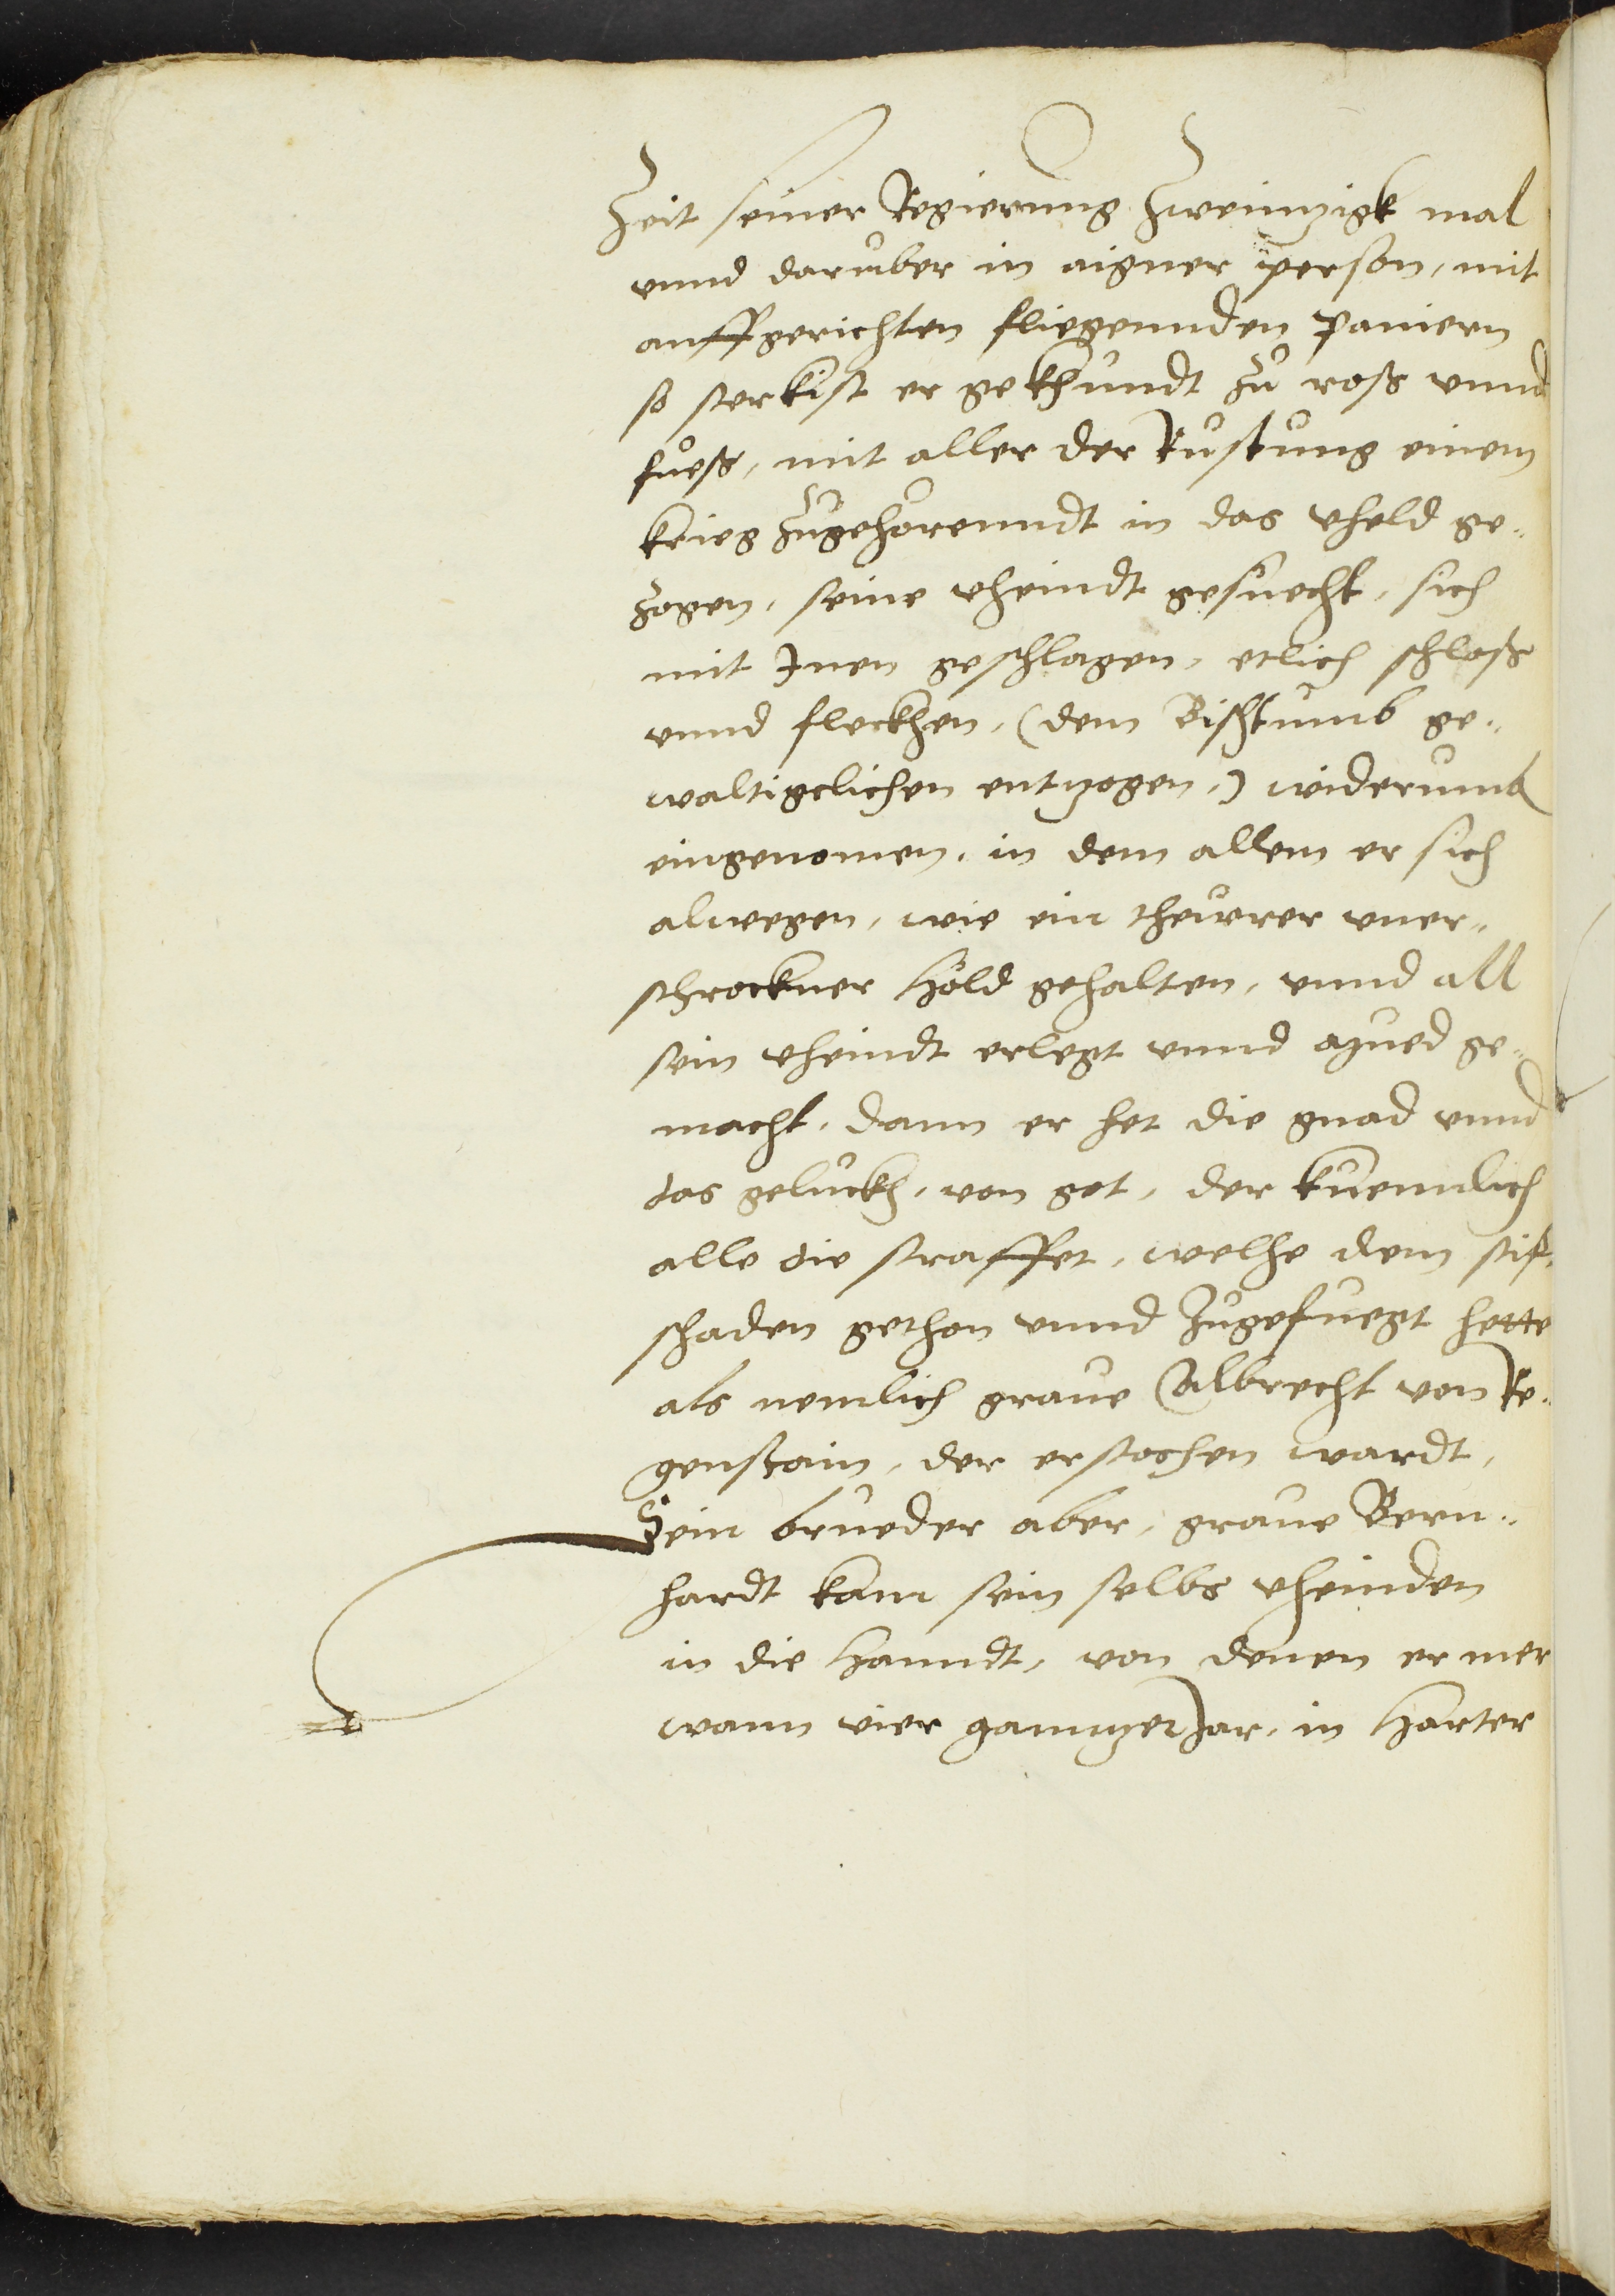 Zeit seiner Regierung Zweinnzigk mal
vnnd daruber in aigner person, mit
auffgerichten fliegennden Paniern
so sterkist er gekhundt Zu roß vnnd
fueß, mit aller der Rustung einem
krieg Zugehörenndt in das vheld ge-
zogen, seine vheindt gesuecht, sich
mit Inen geschlagen, etlich schloß
vnnd fleckhen, (dem Bisthumb ge-
waltigclichen entzogen,) widerumb
eingenomen, in dem allem er sich
alwegen, wie ein theurer vner-
schrockner Höld gehalten, vnnd all
sein vheindt erlegt vnnd mued ge-
macht, dann er het die gnad vnnd
das geluckh, von got, der kuemlich
alle die straffet, welhe dem stift
schaden gethon vnnd Zugefuegt hette
als nemlich graue Albrecht von Re-
genstain, der erstochen wardt,
Sein brueder aber, graue Bern-
hardt kam sein selbs vheinden
in die Hanndt, von denen er mer
wann vier gannzer Jar, in Harter